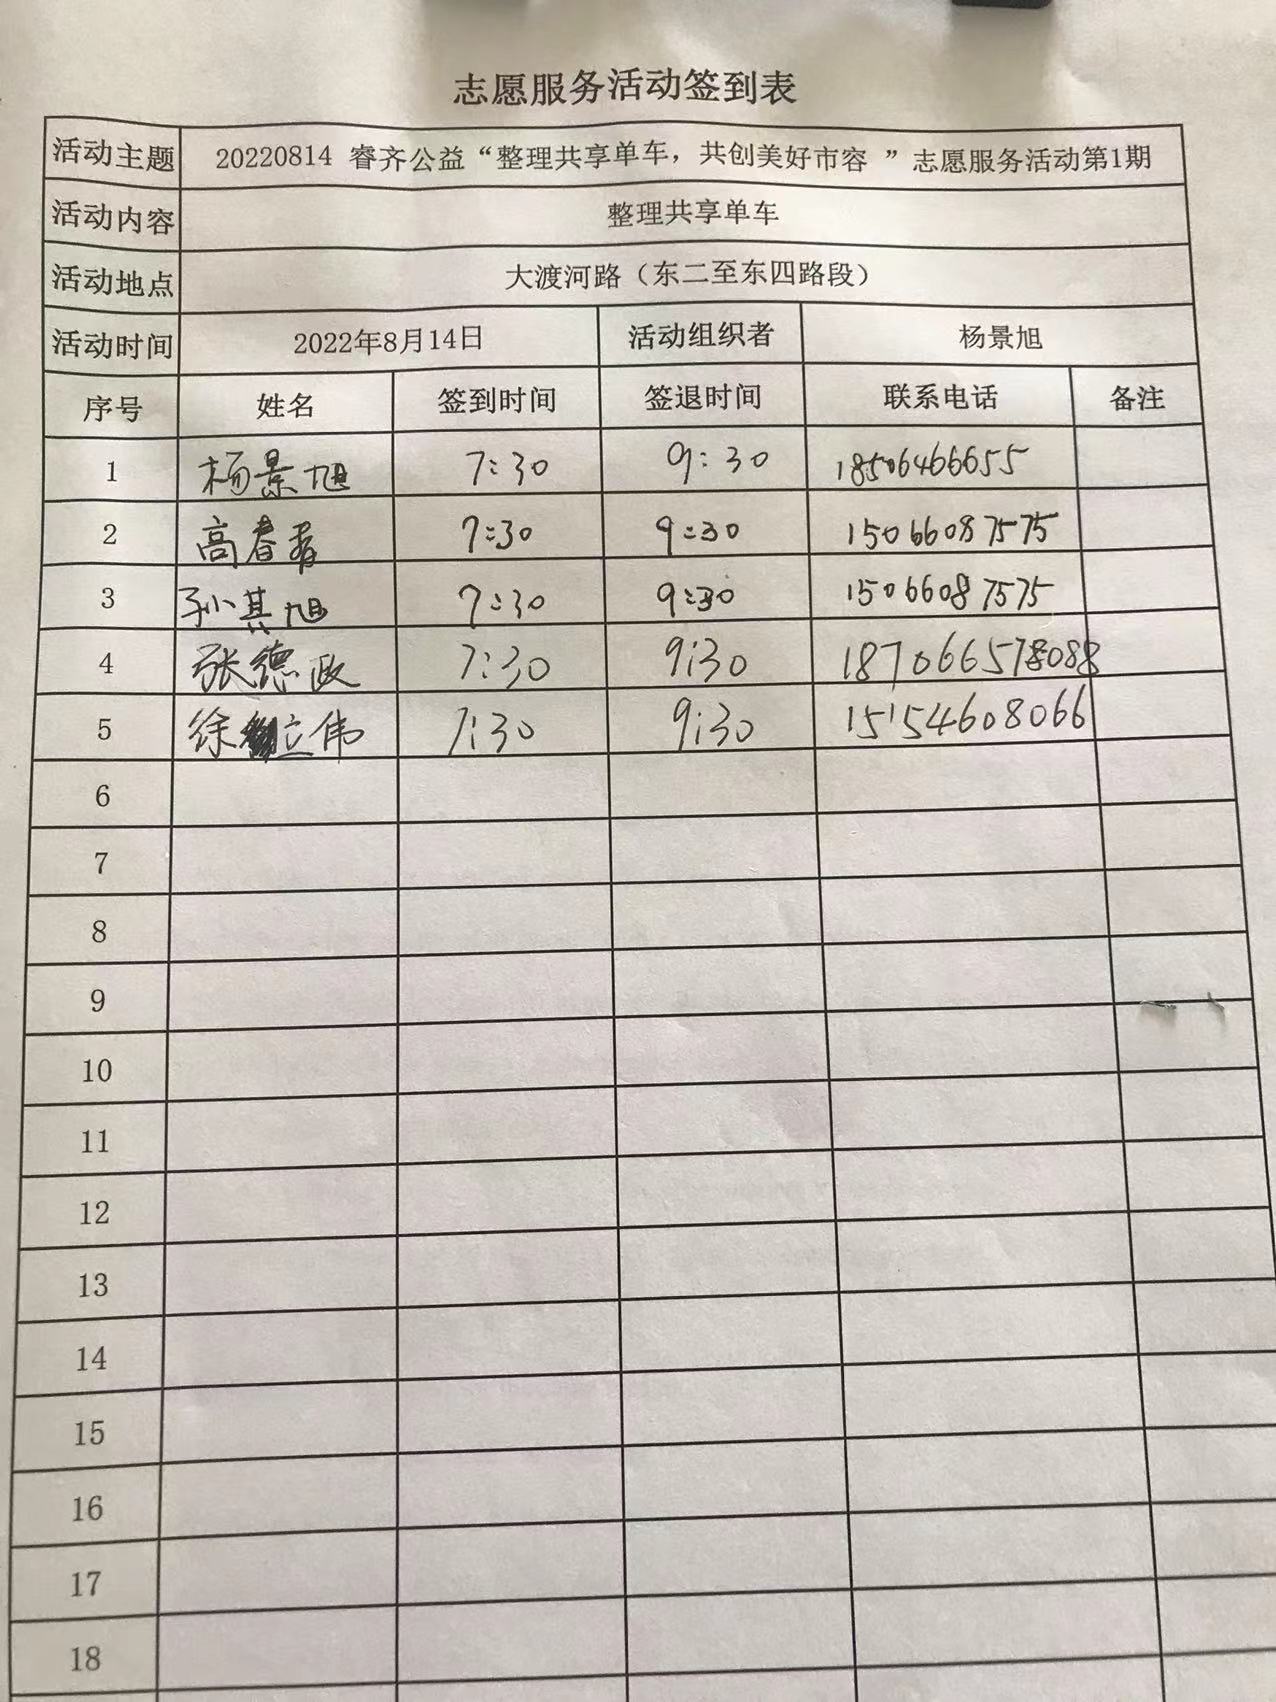 志愿服务活动签到表
活动主题 20220814 睿齐公益“整理共享单车，共创美好市容 ”志愿服务活动第1期
活动内容 整理共享单车
活动地点 大渡河路（东二至东四路段）
活动时间 2022年8月14日 活动组织者 杨景旭
序号 姓名 签到时间 签退时间 联系电话 备注
1 杨景旭 7:30 9:30 18506466655
2 高春 7:30 9:30 15066087575
3 孙其旭 7:30 9:30 15066087575
4 张德政 7:30 9:30
5 徐立伟 7:30 9:30 15154608066
6
7
8
9
10
11
12
13
14
15
16
17
18